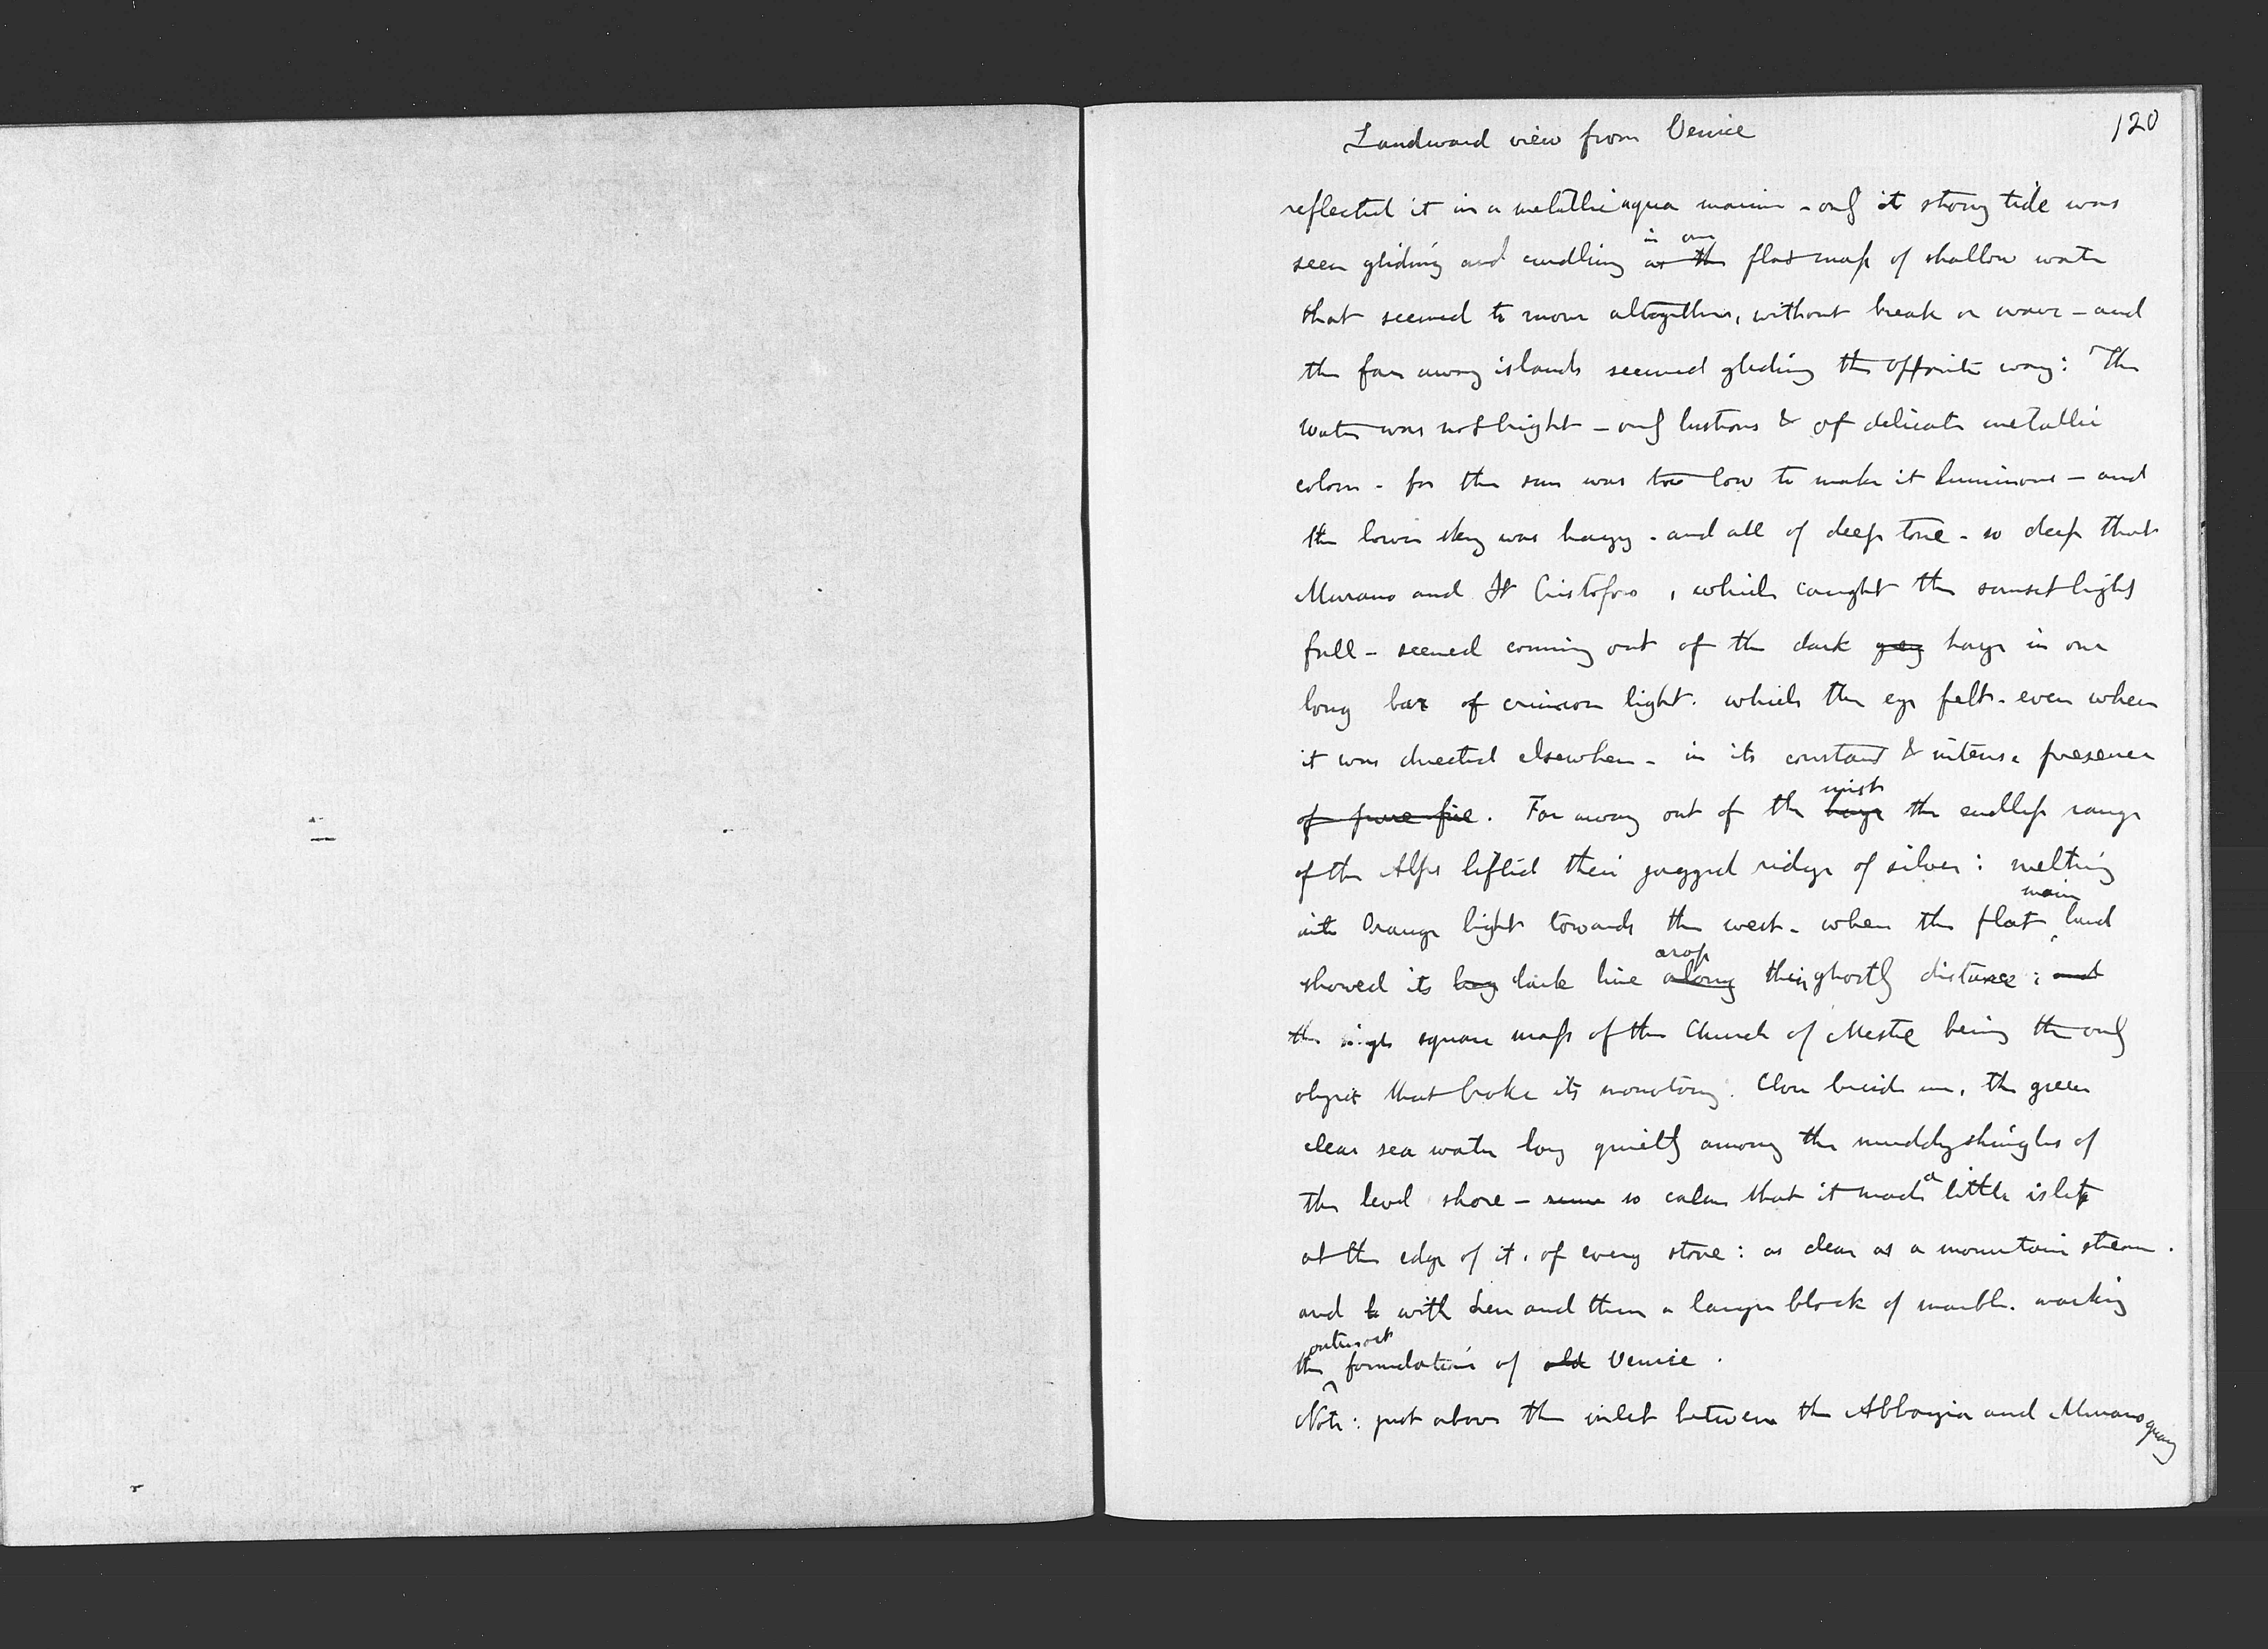 Landward view from Venice
120
reflected it in a metallic aqua marine - only it strong tide was
seen gliding and curdling as the in one flat mass of shallow water
that seemed to move altogether, without break or wave - and
the far away islands seemed gliding the opposite way: The
water was not bright - only lustrous & of delicate metallic
colour - for the sun was too low to make it luminous - and
the lower sky was hazy - and all of deep tone - so deep that
Murano and St Cristoforo, which caught the sunset light
full - seemed coming out of the dark grey haze in one
long bar of crimson light. which the eye felt - even when
it was directed elsewhere - in its constant & intense presence
of pure fire. Far away out of the haze mist the endless range
of the Alps lifted their jagged ridge of silver: melting
into Orange light towards the west - where the flat main land
showed its long dark line along across their ghostly distance: and
the single square mass of the Church of Mestre being the only
object that broke its monotony. Close beside me, the green
clear sea water lay quietly among the muddy shingles of
the level shore - so calm that it made a little islet
at the edge of it, of every stone: as clear as a mountain stream.
and with here and there a larger block of marble. marking
the outermost foundation of old Venice.
Note: just above the inlet between the Abbazia and Murano quay